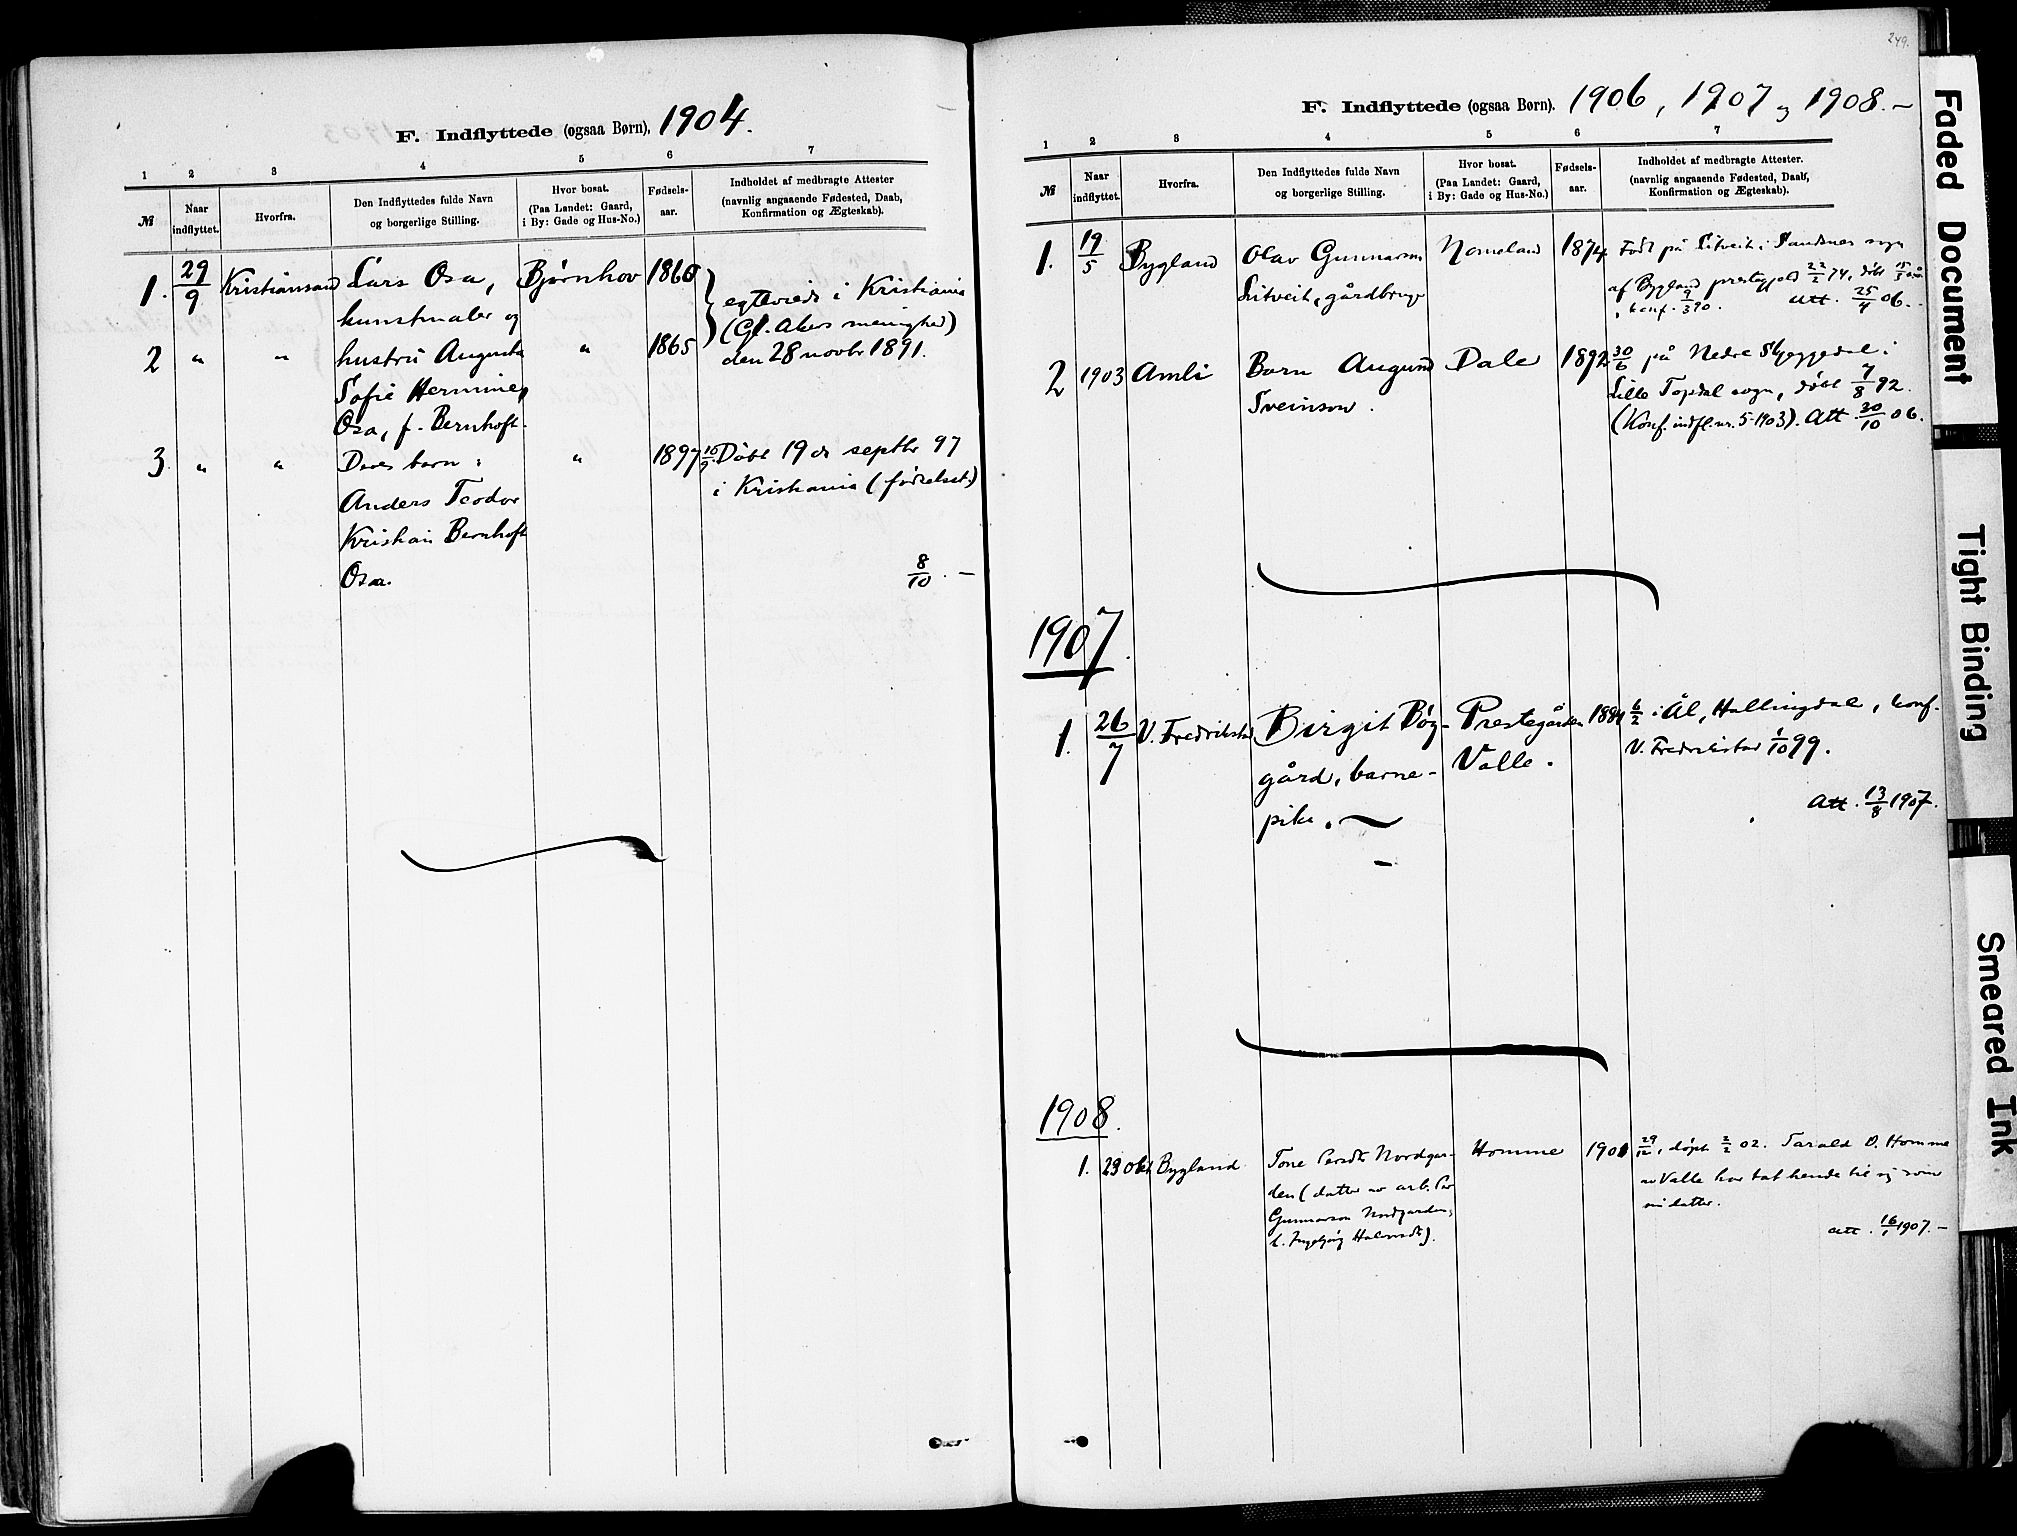 F. Indflyttede (ogsaa Børn). 1904.
1 2 3 4 5 6 7
№
Naar indflyttet.
Hvorfra.
Den Indflyttedes fulde Navn og borgerlige Stilling.
Hvor bosat. (Paa Landet: Gaard, i By: Gade og Hus-No.)
Fødsels-aar.
Indholdet af medbragte Attester (navnlig angaaende Fødested, Daab, Konfirmation og Ægteskab).
1. 29/9 Kristiansand Lars Osa, Bjørnhov 1860
kunstmaler og
egteviede i Kristiania
(Gl. Akers menighed)
den 28 novbr 1891.
2 " " hustru Augusta " 1865
Sofie Hermine
Osa, f. Bernhoft.
3. " " Deres barn: " 1897 Døbt 19de septbr 97
Anders Teodor i Kristiania (fødselsst.)
Kristian Bernhoft
Osa. 8/10. —
249.
F. Indflyttede (ogsaa Børn). 1906, 1907 og 1908. —
1 2 3 4 5 6 7
№
Naar indflyttet.
Hvorfra.
Den Indflyttedes fulde Navn og borgerlige Stilling.
Hvor bosat. (Paa Landet: Gaard, i By: Gade og Hus-No.)
Fødsels-aar.
Indholdet af medbragte Attester. (navnlig angaaende Fødested, Daab, Konfirmation og Ægteskab).
1. 19/5 Bygland Olav Gunnarson Nomeland 1874 Født på Litveit i Sandnes sogn
Litveit, gårdbruger af Bygland prestegjeld 22/2 74, døbt 15/3
konf. 9/3 90. Att. 25/4 06.
2 1903 Amli Barn Augund Dale 1892 30/6 på Nedre Skjeggedal i
Sveinson. Lille Topdal sogn, døbt 7/8 92.
(Konf. indfl. nr. 5 1903). Att. 30/10 06.
1907.
1. 26/7 V. Fredrikstad Birgit Bøy- Prestegården 1884 6/2 i Ål, Hallingdal, konf.
gård, barne- Valle. V. Fredrikstad 1/10 99.
pike. Att. 13/8 1907.
1908.
1. 29 okt Bygland Tone Persdt. Nordgar- Homme 1901 29/12, døpt 2/2 02. Tarald O. Homme
den (datter av arb. Per av Valle har tat hende til sig som
Gunnarson Nordgarden, sin datter.
h. Ingebjørg Halvorsdt.). Att. 16/1 1907. —
Faded Document
Tight Binding
Smeared Ink